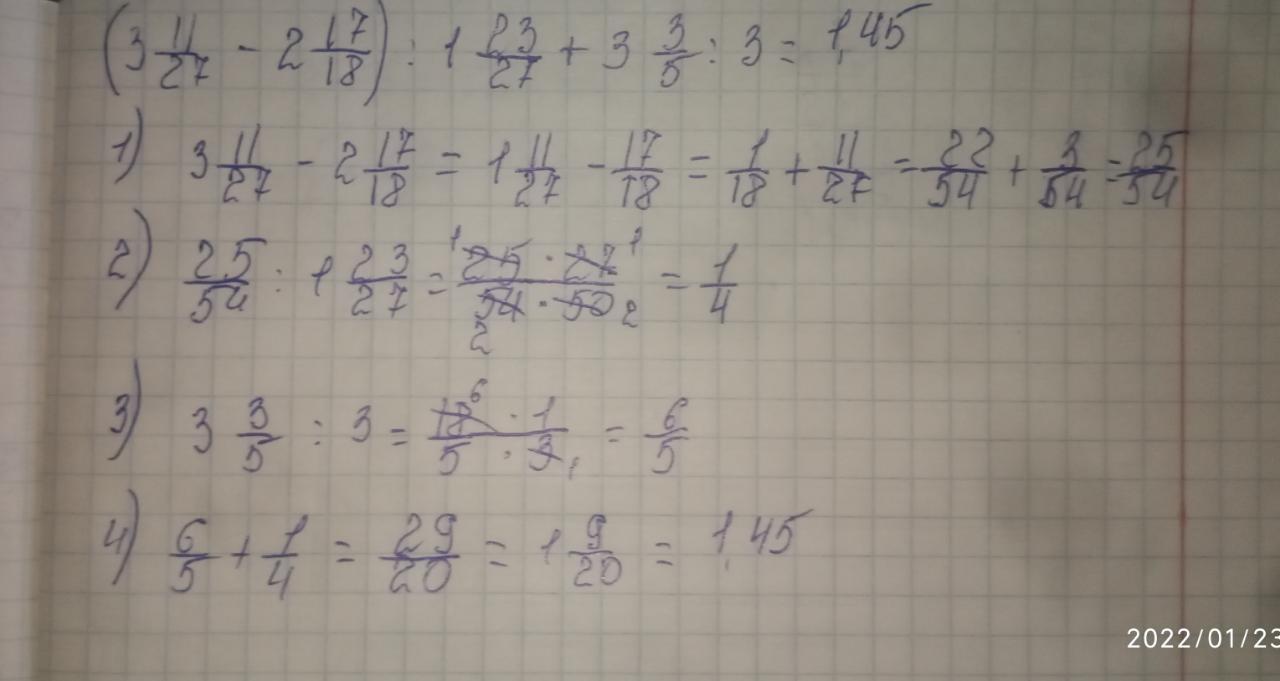 (3 11/27 - 2 17/18) : 1 23/27 + 3 3/5 : 3 = 1,45
1) 3 11/27 - 2 17/18 = 1 11/27 - 17/18 = 1/18 + 11/27 = 22/54 + 3/54 = 25/54
2) 25/54 : 1 23/27 = ¹25 · 27¹/54₂ · 50₂ = 1/4
3) 3 3/5 : 3 = 18⁶ · 1/5 · 3₁ = 6/5
4) 6/5 + 1/4 = 29/20 = 1 9/20 = 1,45
2022/01/23